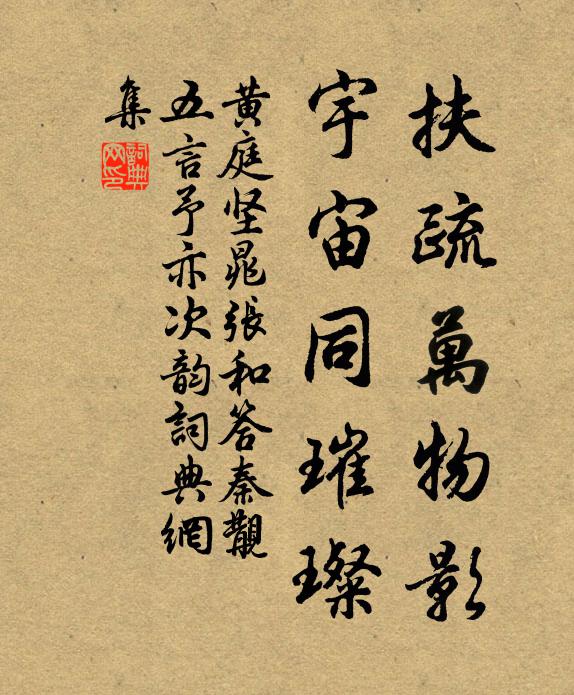 扶疏萬物影
宇宙同璀璨
黄庭坚晁張和答秦觀
五言予亦次韵詞典網
集
詞典網印